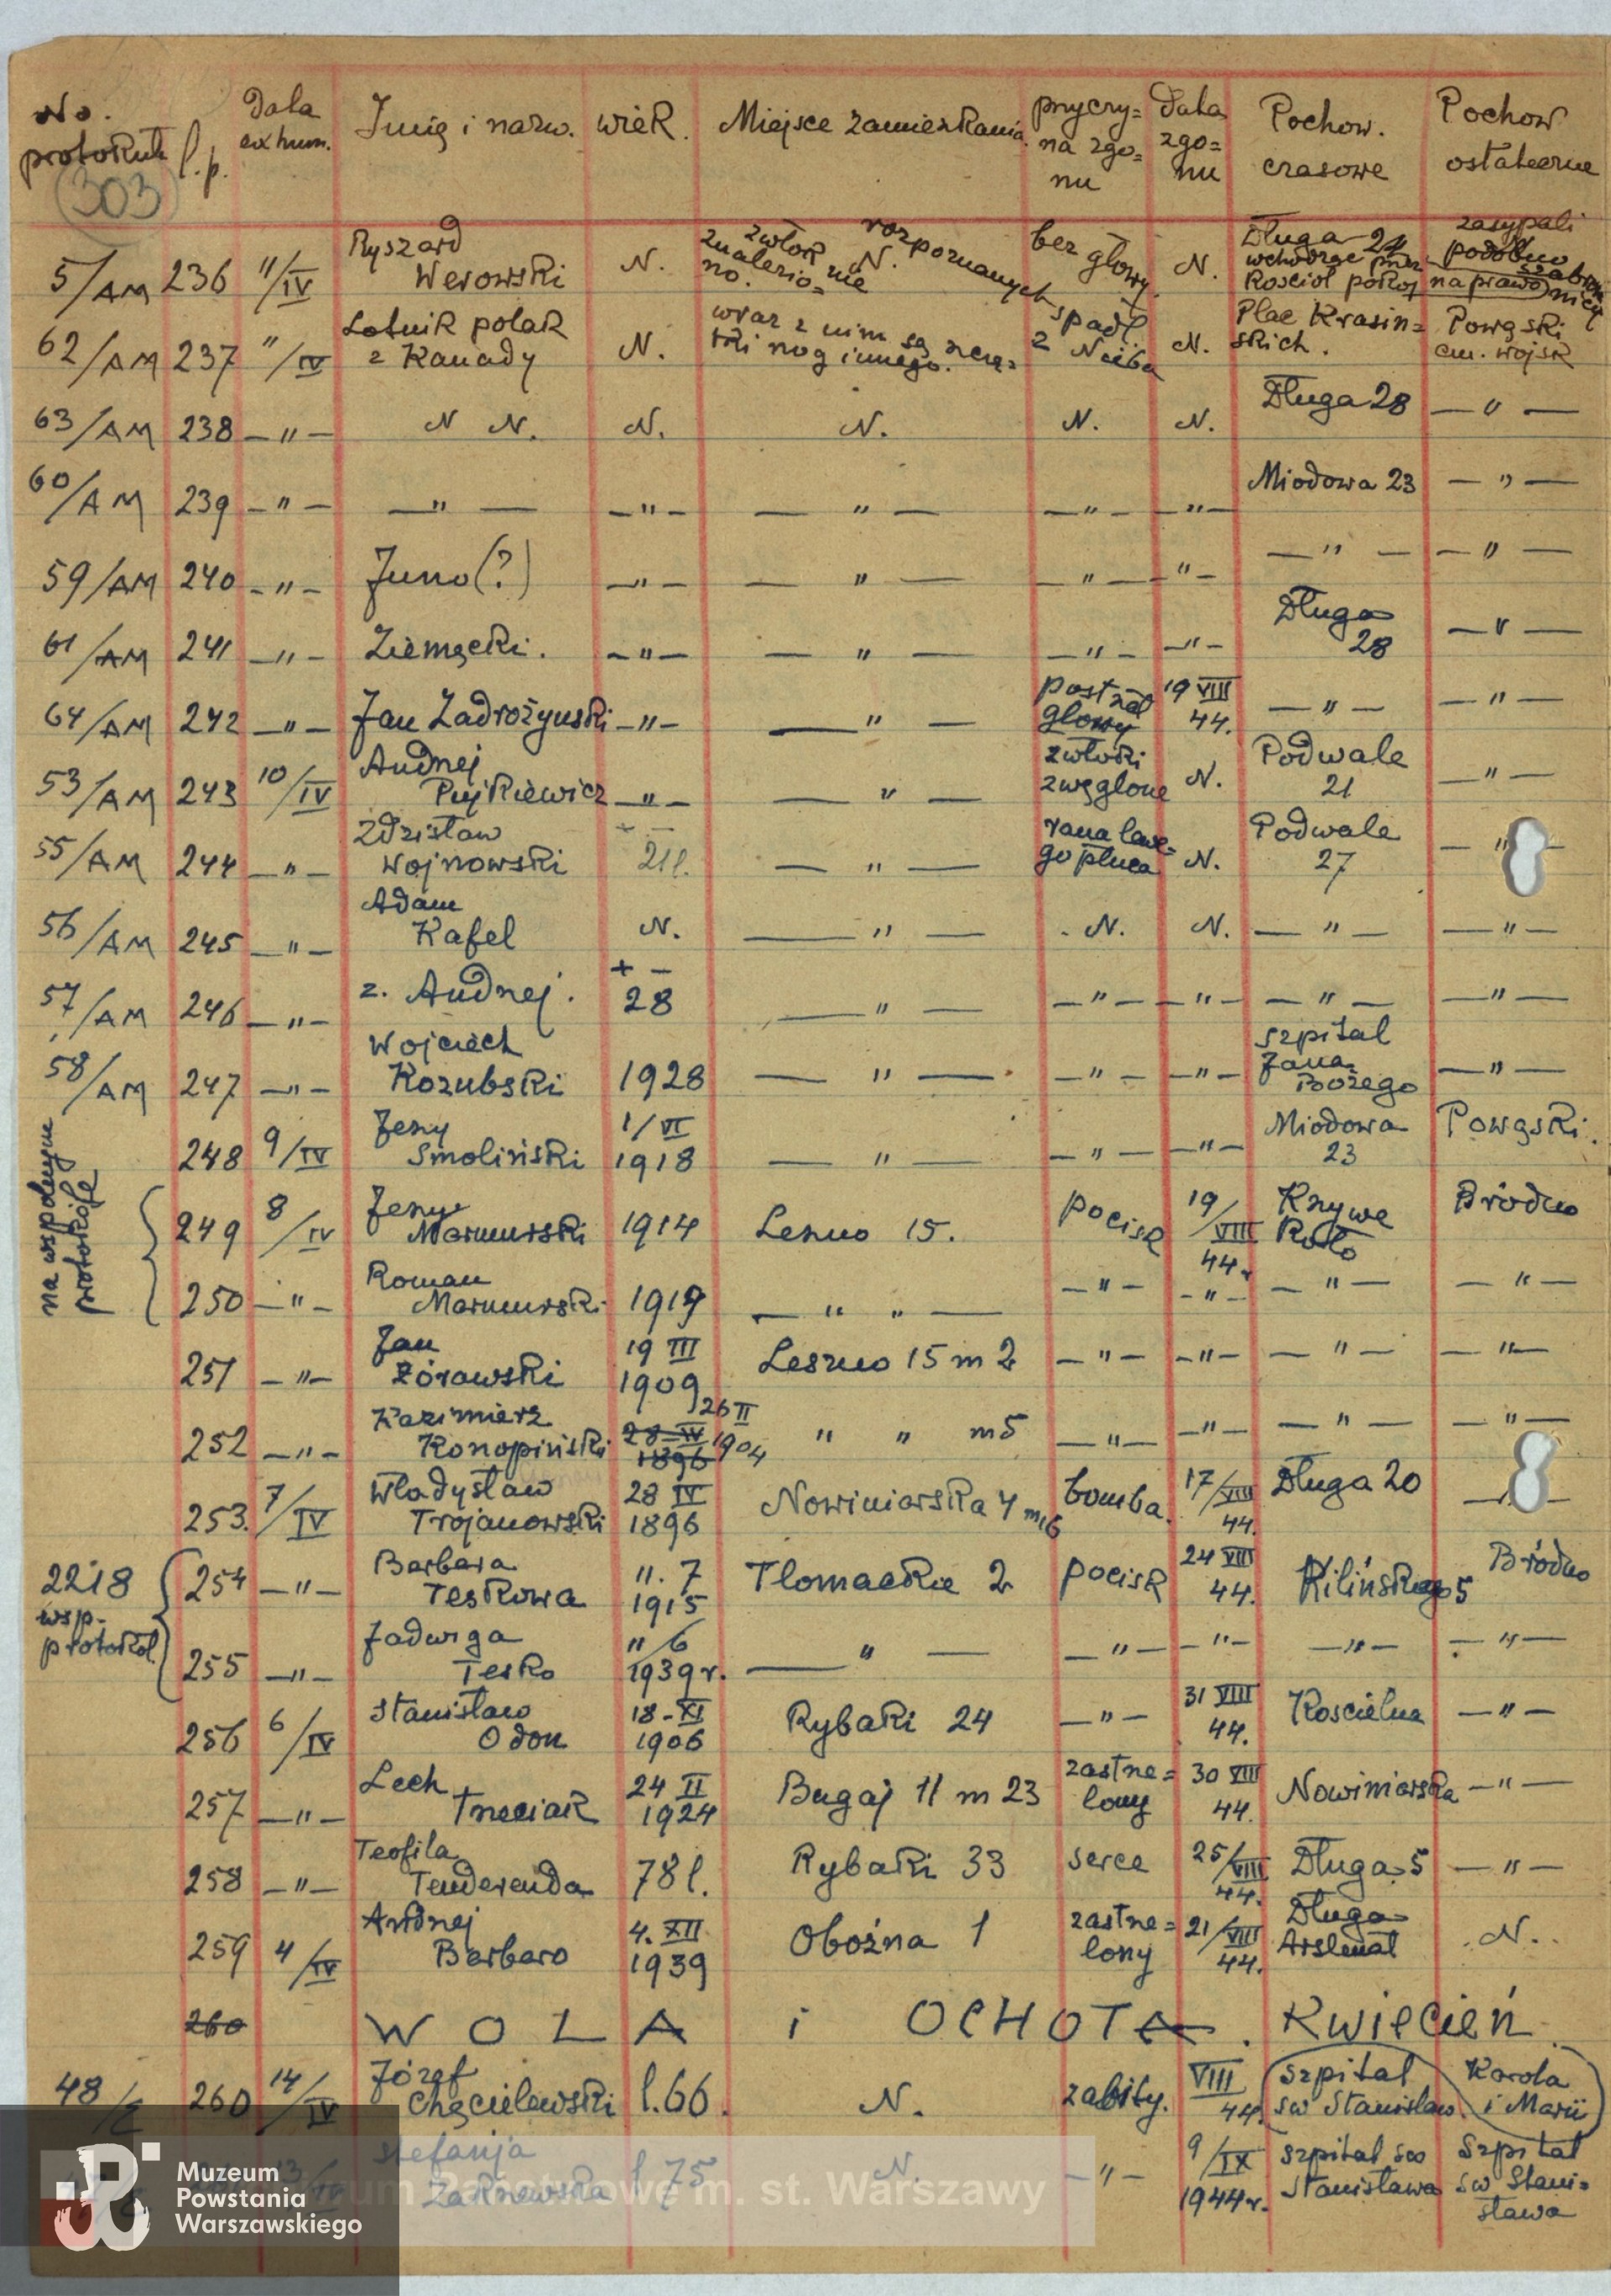 No. protokułu l.p. Data exhum. Imię i nazw. wiek. Miejsce zamieszkania. przyczy= na zgo= nu Data zgo= nu Pochow. czasowe Pochow ostateczne
303
5/AM 236 11/IV Ryszard Werowski N. zwłok rozpoznanych N. nie znalezio= no. bez głowy. N. Długa 24 wchodząc przez Kościoł pokoj na prawo zasypali podobno
62/AM 237 "/IV Lotnik polak z Kanady N. wraz z nim są szcząt= ki nog innego. spadł z Nieba N. Plac Krasiń= skich. Powązki cm. wojsk
63/AM 238 —"— N N. N. N. N. N. Długa 28 —"—
60/AM 239 —"— —"— —"— —"— —"— —"— Miodowa 23 —"—
59/AM 240 —"— Juno (?) —"— —"— —"— —"— —"— —"—
61/AM 241 —"— Ziemęcki. —"— —"— —"— —"— Długa 28 —"—
64/AM 242 —"— Jan Zadrożyński —"— —"— postrzał głowy 19 VIII 44. —"— —"—
53/AM 243 10/IV Andrzej Pujkiewicz —"— —"— zwłoki zwęglone N. Podwale 21 —"—
55/AM 244 —"— Zdzisław Wojnowski + — 21 l. —"— rana lewe= go płuca N. Podwale 27 —"—
56/AM 245 —"— Adam Kafel N. —"— N. N. —"— —"—
57/AM 246 —"— z. Andrzej. + — 28 —"— —"— —"— —"— —"—
58/AM 247 —"— Wojciech Kozubski 1928 —"— —"— —"— szpital Jana Bożego —"—
248 9/IV Jerzy Smoliński 1/VI 1918 —"— —"— —"— Miodowa 23 Powązki.
na wspólnym protokóle
249 8/IV Jerzy Marmurski 1914 Leszno 15. pocisk 19/VIII 44r. Krzywe Koło Bródno
250 —"— Roman Marmurski 1919 —" "— —"— —"— —"— —"—
251 —"— Jan Żórawski 19 III 1909 Leszno 15 m 2 —"— —"— —"— —"—
252 —"— Kazimierz Konopiński 28 IV 1896 26 II 1904 " " m 5 —"— —"— —"— —"—
253. 7/IV Władysław Trojanowski 28 IV 1896 Nowiniarska 4 m 6 bomba. 17/VIII 44. Długa 20 —"—
2218 wsp. protokół.
254 —"— Barbara Teskowa 11. 7 1915 Tłomackie 2 pocisk 24 VIII 44. Kilińskiego 5 Bródno
255 —"— Jadwiga Tesko 11/6 1939 r. —"— —"— —"— —"— —"—
256 6/IV Stanisław Odon 18-XI 1906 Rybaki 24 —"— 31 VIII 44. Kościelna —"—
257 —"— Lech Trzeciak 24 II 1924 Bugaj 11 m 23 zastrze= lony 30 VIII 44. Nowiniarska —"—
258 —"— Teofila Tenderenda 78 l. Rybaki 33 serce 25/VIII 44. Długa 5 —"—
259 4/IV Andrzej Barbaro 4. XII 1939 Oboźna 1 zastrze= lony 21/VIII 44. Długa Arsenał N.
260 WOLA i OCHOTA. Kwiecień.
48/ 260 14/IV Józef Chęcielewski l. 66. N. zabity. VIII 44. szpital św Stanisław. Karola i Marii
Stefanja Zakrzewska l 75 N. —"— 9/IX 1944r. szpital św Stanisława Szpital św Stani= sława
Muzeum
Powstania
Warszawskiego
m. st. Warszawy